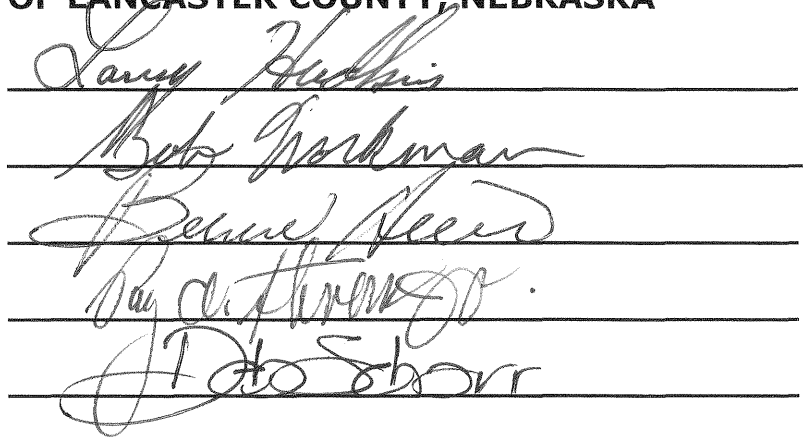 OF LANCASTER COUNTY, NEBRASKA
Larry Hudkins
Bob Workman
Bernie Heier
Ray A. Stevens Jr.
Deb Schorr